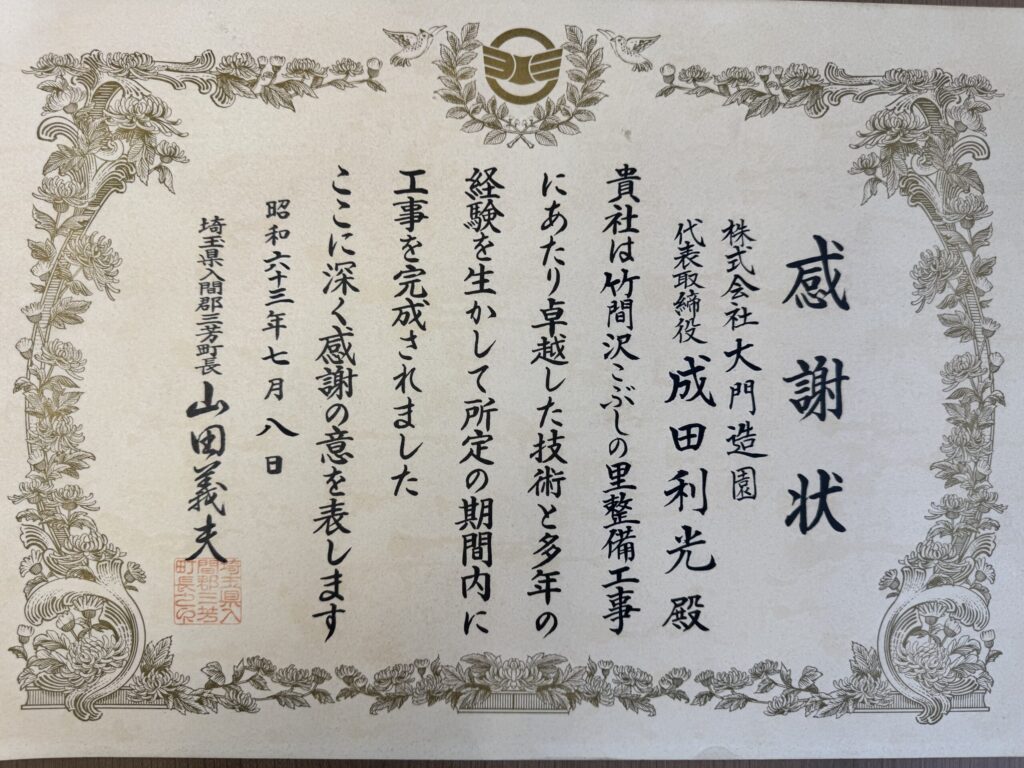 感謝状
株式会社大門造園
代表取締役 成田利光 殿
貴社は竹間沢こぶしの里整備工事
にあたり卓越した技術と多年の
経験を生かして所定の期間内に
工事を完成されました
ここに深く感謝の意を表します
昭和六十三年七月八日
埼玉県入間郡三芳町長 山田義夫
埼玉県入
間郡三芳
町長之印